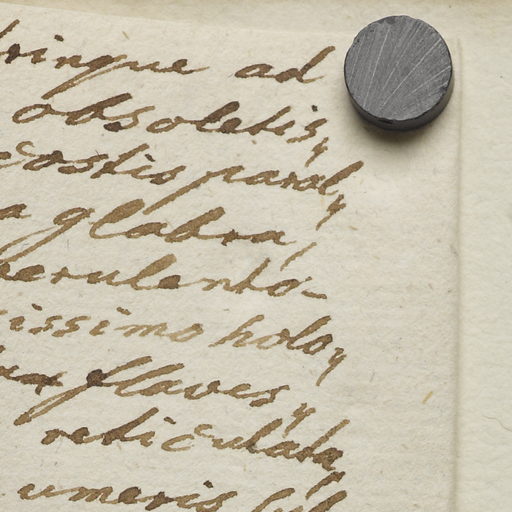 ringue ad
obsoletis,
costis paral,
a glabra,
perulento-
issimo holo,
flaves,
reticulata,
umeris